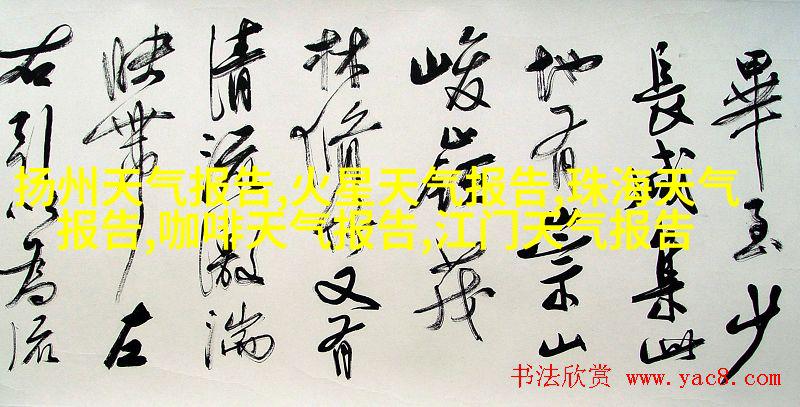 畢至少
長咸集此
地有崇山
峻嶺茂
林脩竹又有
清流激湍
映帶左
右引以為流
扬州天气报告,火星天气报告,珠海天气
报告,咖啡天气报告,江门天气报告
书法欣赏 www.yac8.com